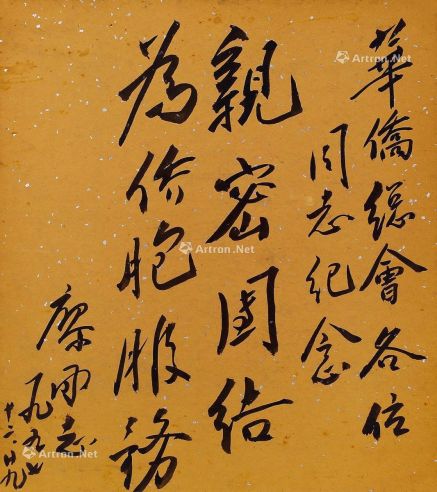 華僑總會各位
同志紀念
親密團结
為侨胞服務
廖承志
Artron.Net
Artron.Net
Artron.Net
Artron.Net